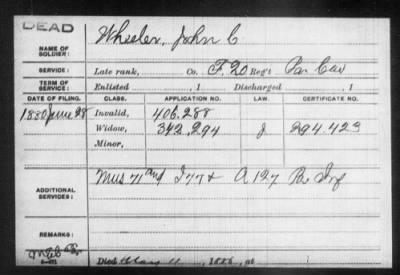 DEAD
NAME OF SOLDIER: Wheeler, John C
SERVICE: Late rank, Co. F. 20 Reg't Pa Cav
TERM OF SERVICE: Enlisted , 1 Discharged , 1
DATE OF FILING. CLASS. APPLICATION NO. LAW. CERTIFICATE NO.
1880 June 28 Invalid, 406.288
Widow, 342,294 J 294.423
Minor,
ADDITIONAL SERVICES: Mus 71 and I 77 & A 127 Pa Inf
REMARKS:
Died May 11, 1886, at